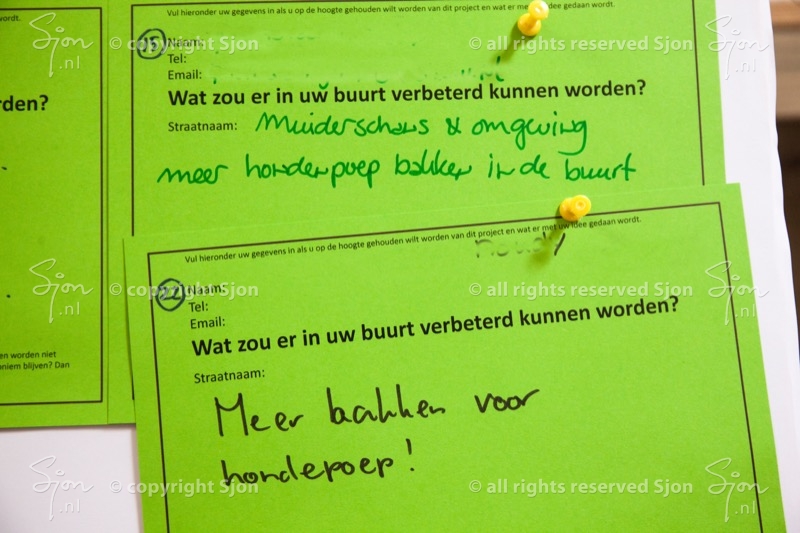 wordt.
Vul hieronder uw gegevens in als u op de hoogte gehouden wilt worden van dit project en wat er met uw idee gedaan wordt.
15 Naam:
Tel:
Email:
rden?
Wat zou er in uw buurt verbeterd kunnen worden?
Straatnaam: Muiderschans & omgeving
meer hondenpoep bakken in de buurt
Vul hieronder uw gegevens in als u op de hoogte gehouden wilt worden van dit project en wat er met uw idee gedaan wordt.
22 Naam:
Tel:
Email:
Wat zou er in uw buurt verbeterd kunnen worden?
Straatnaam:
Meer bakken voor
hondepoep!
en worden niet
oniem blijven? Dan
Sjon.nl
© copyright Sjon
© all rights reserved Sjon
Sjon.nl
Sjon.nl
© copyright Sjon
© all rights reserved Sjon
Sjon.nl
Sjon.nl
© copyright Sjon
© all rights reserved Sjon
Sjon.nl